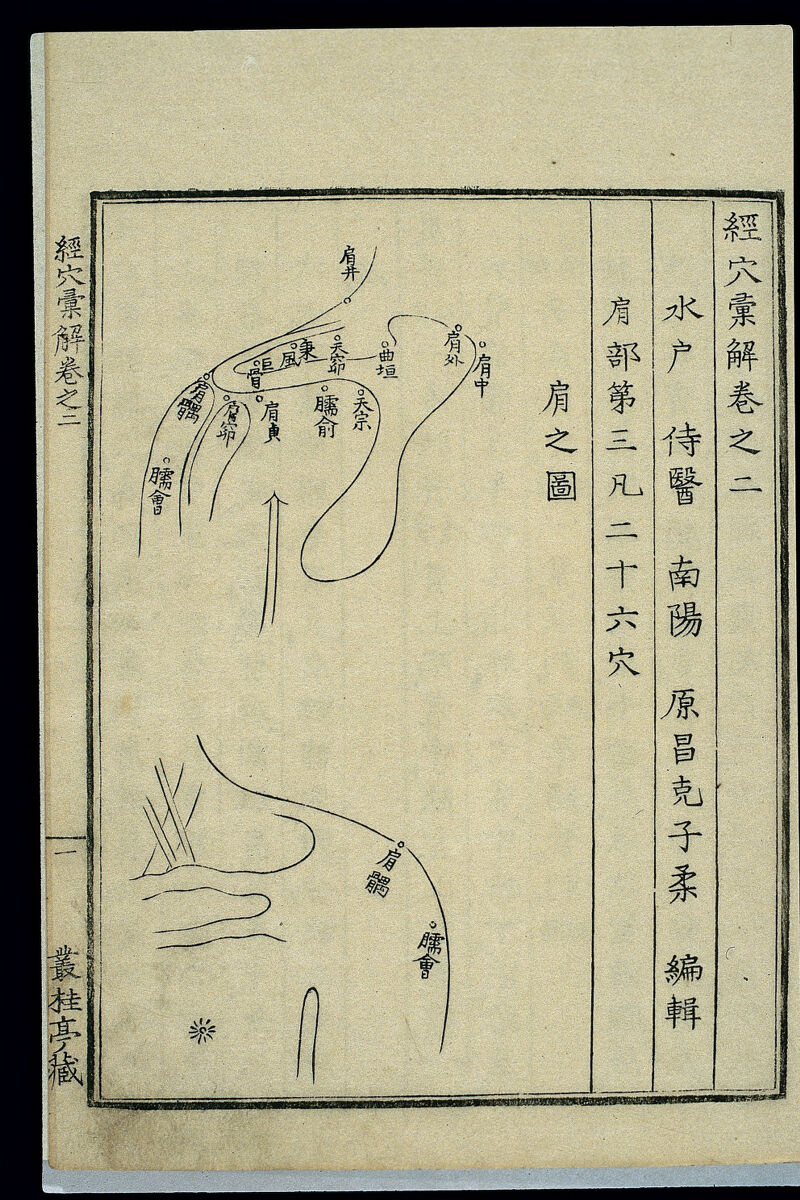 經穴彙解卷之二
水戶 侍醫 南陽 原昌克子柔 編輯
肩部第三凡二十六穴
肩之圖
肩井
肩中
肩外
曲垣
天窌
秉風
巨骨
天宗
臑俞
肩貞
肩窌
肩髃
臑會
肩髃
臑會
經穴彙解卷之二
一
叢桂亭藏